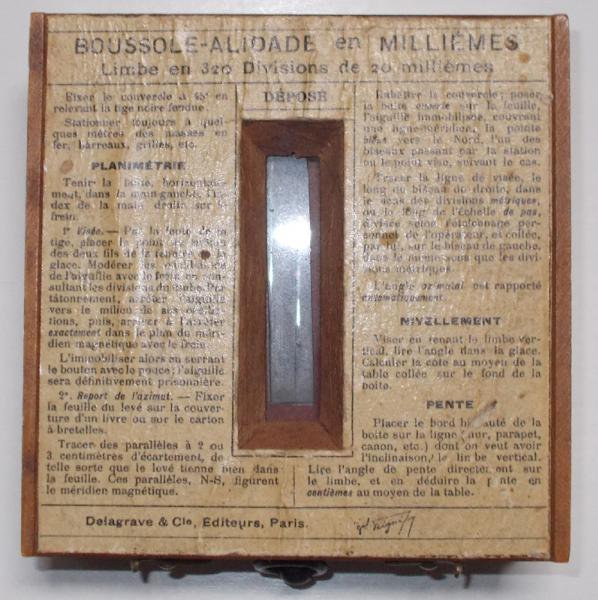 BOUSSOLE-ALIDADE en MILLIÈMES
Limbe en 320 Divisions de 20 millièmes
DÉPOSÉ
Fixer le couvercle à 45° en
relevant la tige noire fendue.
Stationner toujours à quel-
ques mètres des masses en
fer, barreaux, grilles, etc.
PLANIMÉTRIE
Tenir la boîte, horizontale-
ment, dans la main gauche, l'in-
dex de la main droite sur le
frein.
1° Visée. — Par la fente de la
tige, placer le point au milieu
des deux fils de la fenêtre de la
glace. Modérer les
de l'aiguille avec le frein en con-
sultant les divisions du limbe. Par
tâtonnement, arrêter l'aiguille
vers le milieu de ses oscilla-
tions, puis, arriver à l'arrêter
exactement dans le plan du méri-
dien magnétique avec le frein.
L'immobiliser alors en serrant
le bouton avec le pouce; l'aiguille
sera définitivement prisonnière.
2°. Report de l'azimut. — Fixer
la feuille du levé sur la couver-
ture d'un livre ou sur le carton
à bretelles.
Tracer des parallèles à 2 ou
3 centimètres d'écartement, de
telle sorte que le levé tienne bien dans
la feuille. Ces parallèles, N-S, figurent
le méridien magnétique.
Rabattre le couvercle; poser
la boîte ouverte sur la feuille,
l'aiguille immobilisée, couvrant
une ligne-méridien, la pointe
bleue vers le Nord, l'un des
biseaux passant par la station
ou le point visé, suivant le cas.
Tracer la ligne de visée, le
long du biseau de droite, dans
le cas des divisions métriques,
ou le long de l'échelle de pas,
divisée selon l'étalonnage per-
sonnel de l'opérateur, et collée,
par lui, sur le biseau de gauche,
dans le même sens que les divi-
sions métriques.
L'angle azimutal est rapporté
automatiquement.
NIVELLEMENT
Viser en tenant le limbe ver-
tical, lire l'angle dans la glace.
Calculer la cote au moyen de la
table collée sur le fond de la
boîte.
PENTE
Placer le bord biseauté de la
boîte sur la ligne (mur, parapet,
canon, etc.) dont on veut avoir
l'inclinaison, le limbe vertical.
Lire l'angle de pente directement sur
le limbe, et en déduire la pente en
centièmes au moyen de la table.
Delagrave & Cie, Éditeurs, Paris.